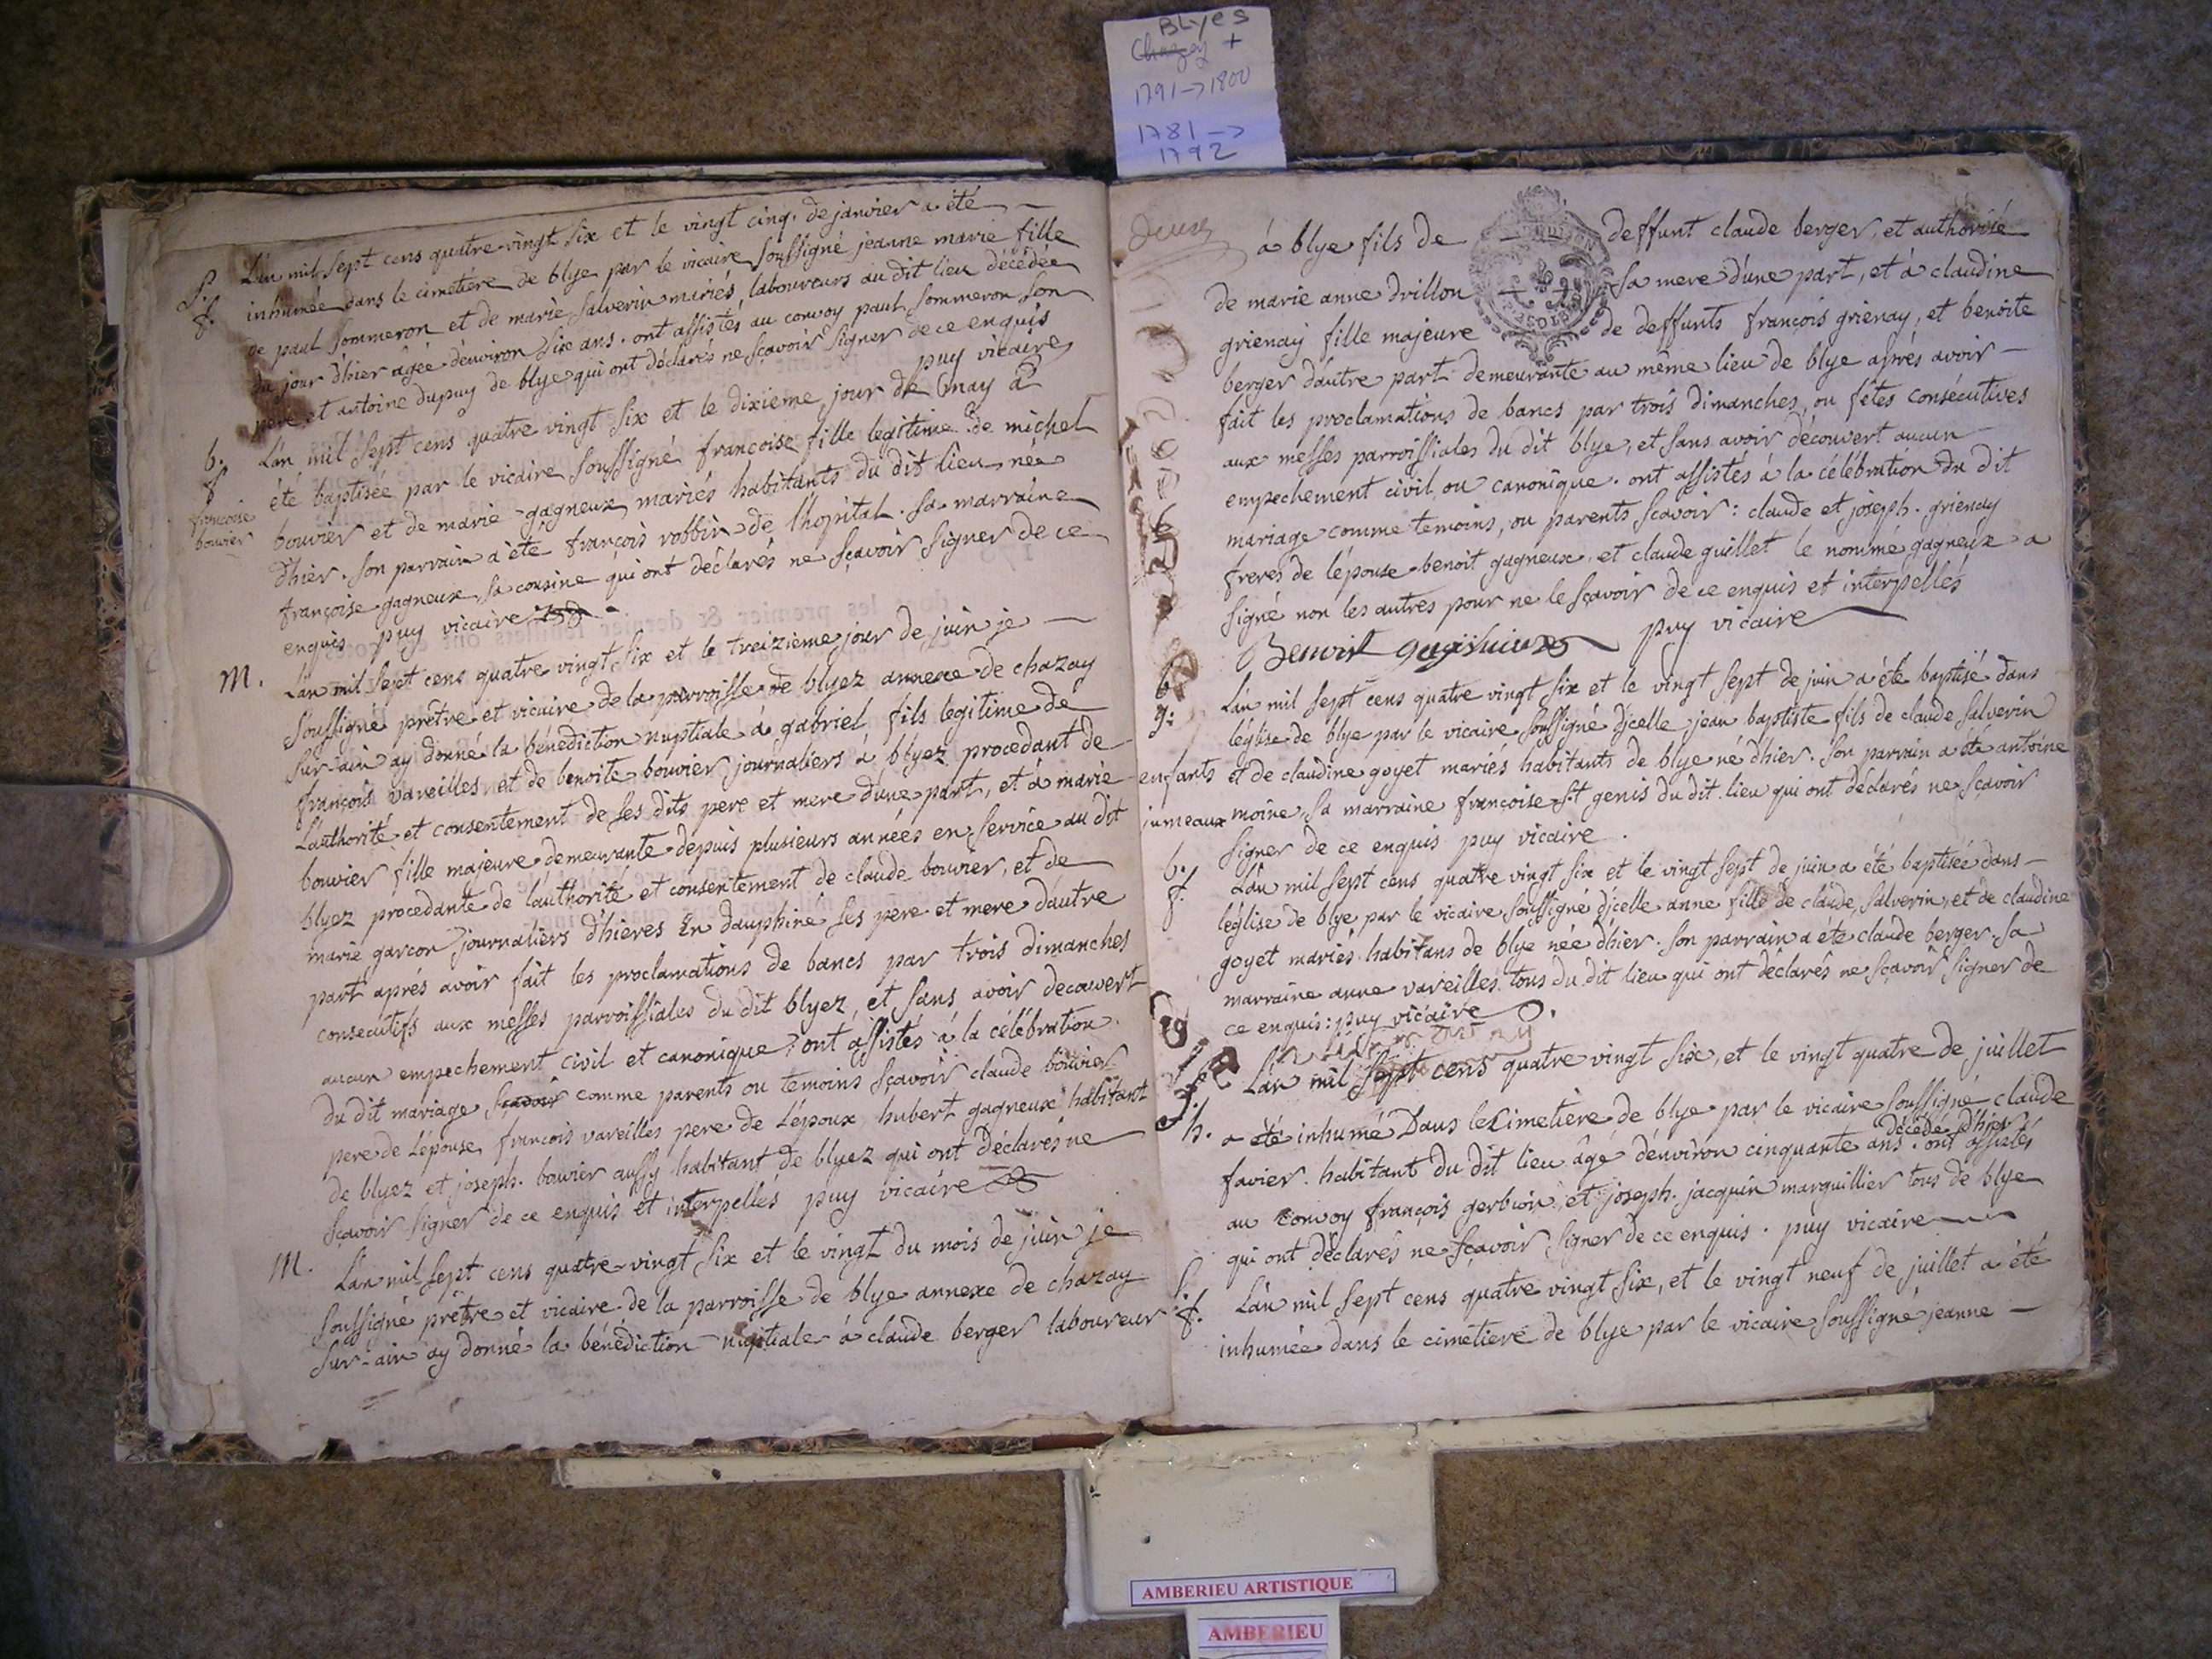 BLyes
Chazey +
1791 -> 1800
1781 ->
1792
S.
f.
L'an mil sept cens quatre vingt six et le vingt cinq de janvier a été
inhumée dans le cimetière de blye par le vicaire soussigné jeanne marie fille
de paul sommeron et de marie salverin mariés, laboureurs au dit lieu décédée
du jour d'hier âgée d'environ six ans. ont assistés au convoy paul sommeron son
pere et antoine dupuy de blye qui ont déclarés ne sçavoir signer de ce enquis
puy vicaire
b.
f
francoise
bouvier
L'an mil sept cens quatre vingt six et le dixieme jour de may a
été baptisée par le vicaire soussigné francoise fille legitime de michel
bouvier et de marie gagneux mariés habitants du dit lieu née
d'hier. son parrain a été françois robbin de l'hopital. sa marraine
françoise gagneux sa cousine qui ont déclarés ne sçavoir signer de ce
enquis puy vicaire
M.
L'an mil sept cens quatre vingt six et le treizieme jour de juin je
soussigné prêtre et vicaire de la parroisse de blyez annexe de chazay
sur-ain ay donné la bénédiction nuptiale à gabriel fils legitime de
françois vareilles et de benoite bouvier journaliers à blyez procedant de
l'authorité et consentement de ses dits pere et mere d'une part, et à marie
bouvier fille majeure demeurante depuis plusieurs années en service au dit
blyez procedante de l'authorité et consentement de claude bouvier, et de
marie garcon journaliers d'hieres En dauphiné ses pere et mere d'autre
part aprés avoir fait les proclamations de bancs par trois dimanches
consecutifs aux messes parroissiales du dit blyez, et sans avoir decouvert
aucun empechement civil et canonique, ont assistés à la célébration
du dit mariage scavoir comme parents ou temoins sçavoir claude bouvier
pere de l'épouse, francois vareilles pere de l'époux hubert gagneux habitant
de blyez et joseph. bouvier aussy habitant de blyez qui ont déclarés ne
sçavoir signer de ce enquis et interpellés puy vicaire
M.
L'an mil sept cens quatre-vingt six et le vingt du mois de juin je
soussigné prêtre et vicaire de la parroisse de blye annexe de chazay
sur-ain ay donné la bénédiction nuptiale à claude berger laboureur
deux
à blye fils de deffunt claude berger, et authorisé
de marie anne drillon sa mere d'une part, et à claudine
grienay fille majeure de deffunts françois grienay, et benoite
berger d'autre part demeurante au même lieu de blye aprés avoir
fait les proclamations de bancs par trois dimanches, ou fêtes consécutives
aux messes parroissiales du dit blye, et sans avoir découvert aucun
empechement civil, ou canonique. ont assistés à la célébration du dit
mariage comme temoins, ou parents scavoir : claude et joseph. grienay
freres de l'épouse benoit gagneux, et claude guillet le nommé gagneux a
signé non les autres pour ne le sçavoir de ce enquis et interpellés
puy vicaire
b.
g.
L'an mil sept cens quatre vingt six et le vingt sept de juin a été baptisé dans
l'église de blye par le vicaire soussigné d'icelle jean baptiste fils de claude salverin
enfants
jumeaux
et de claudine goyet mariés habitants de blye né d'hier. son parrain a été antoine
moine, sa marraine françoise st genis du dit lieu qui ont déclarés ne sçavoir
signer de ce enquis puy vicaire.
b.
f.
L'an mil sept cens quatre vingt six et le vingt sept de juin a été baptisée dans
l'église de blye par le vicaire soussigné d'icelle anne fille de claude salverin, et de claudine
goyet mariés habitans de blye née d'hier. son parrain a été claude berger. sa
marraine anne vareilles. tous du dit lieu qui ont déclarés ne sçavoir signer de
ce enquis : puy vicaire
S.
h.
L'an mil sept cens quatre vingt six, et le vingt quatre de juillet
a été inhumé Dans le Cimetiere de blye par le vicaire soussigné claude
décédé d'hier
favier. habitant du dit lieu âgé d'environ cinquante ans. ont assistés
au convoy françois gerboin et joseph. jacquin marguillier tous de blye
qui ont déclarés ne sçavoir signer de ce enquis. puy vicaire
S.
f.
L'an mil sept cens quatre vingt six, et le vingt neuf de juillet a été
inhumée dans le cimetiere de blye par le vicaire soussigné jeanne
AMBERIEU ARTISTIQUE
AMBERIEU